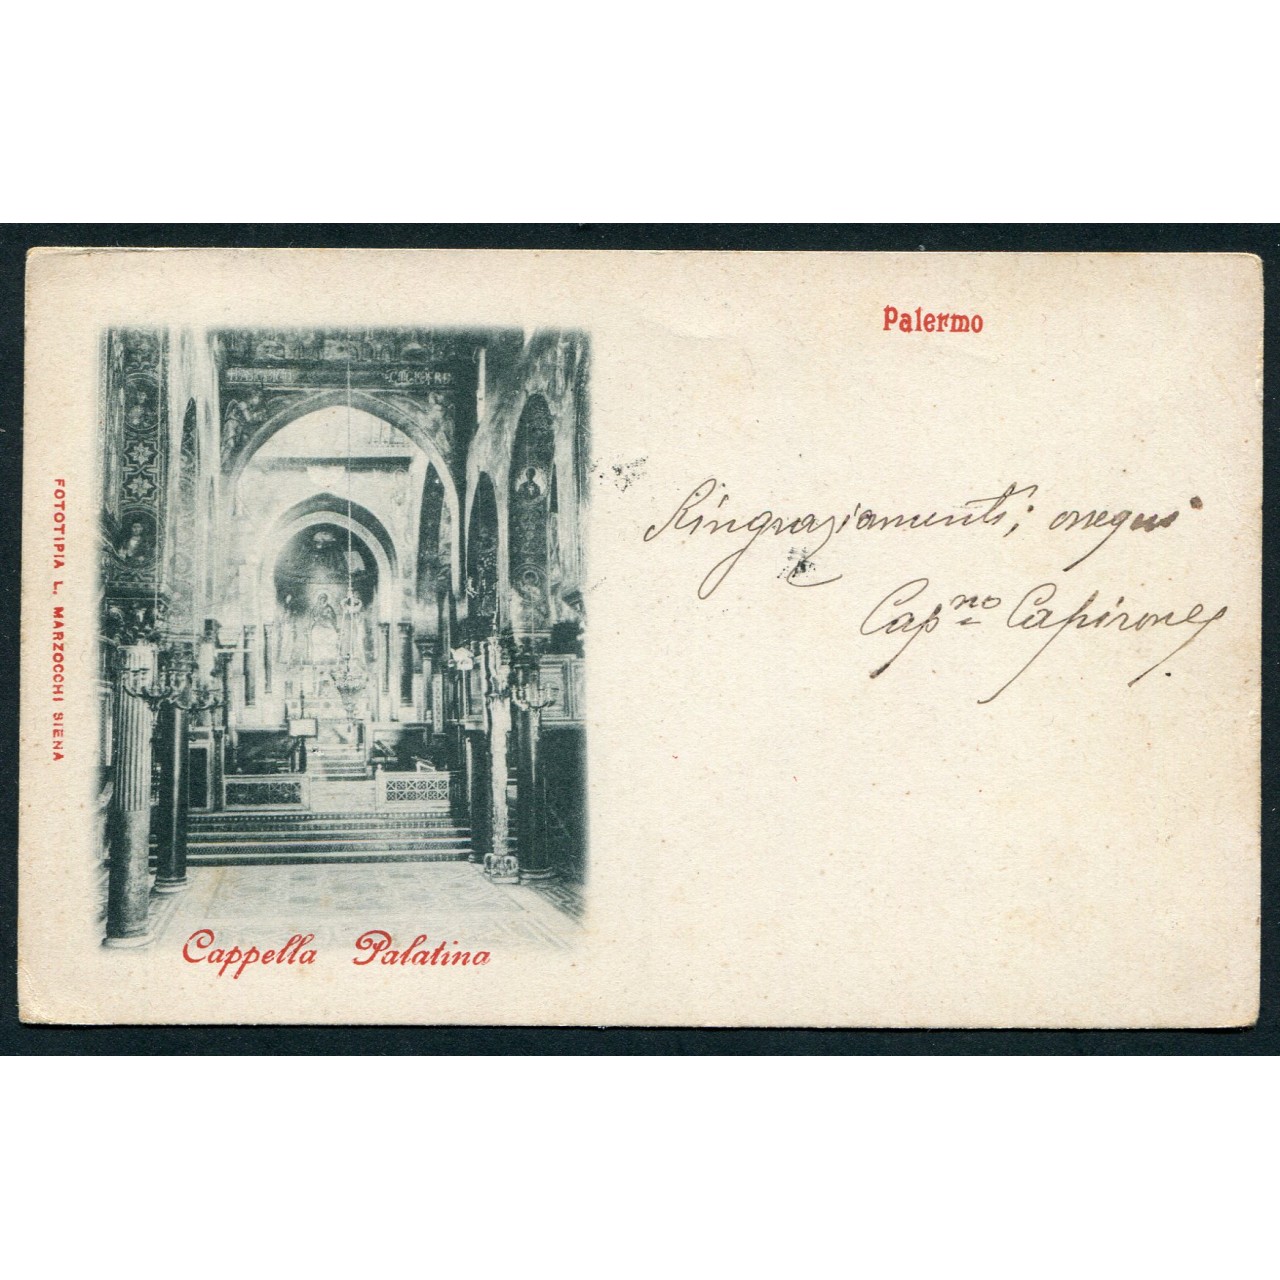 Palermo
FOTOTIPIA L. MARZOCCHI SIENA
Ringraziamenti; ossequi
Cap.no
Cappella Palatina